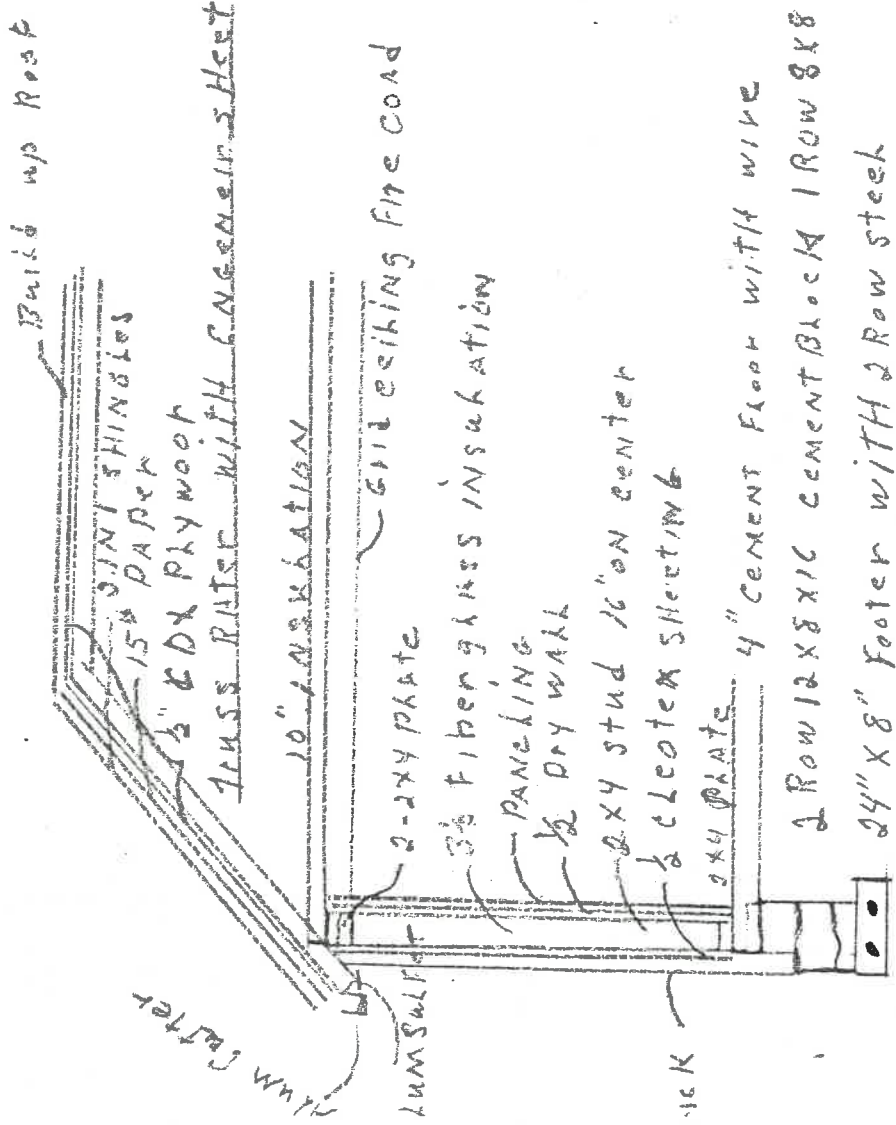 Build up Roof
JINT SHINGLES
15# PAPER
1/2" CDX PLYWOOF
Truss Rafter WITH ENGENEIR SHEET
10" INSULATION
Grid ceiling Fire cord
2-2x4 plate
3½ Fiberglass insulation
PANELING
½ Dry wall
2x4 stud 16" on center
½ CLEOTEX SHEETING
2x4 PLATE
4" CEMENT FLOOR WITH WIRE
2 ROW 12x8x16 CEMENT BLOCK 1 ROW 8x8
24"x8" Footer WITH 2 Row steel
Alum Gutter
LUM
ick